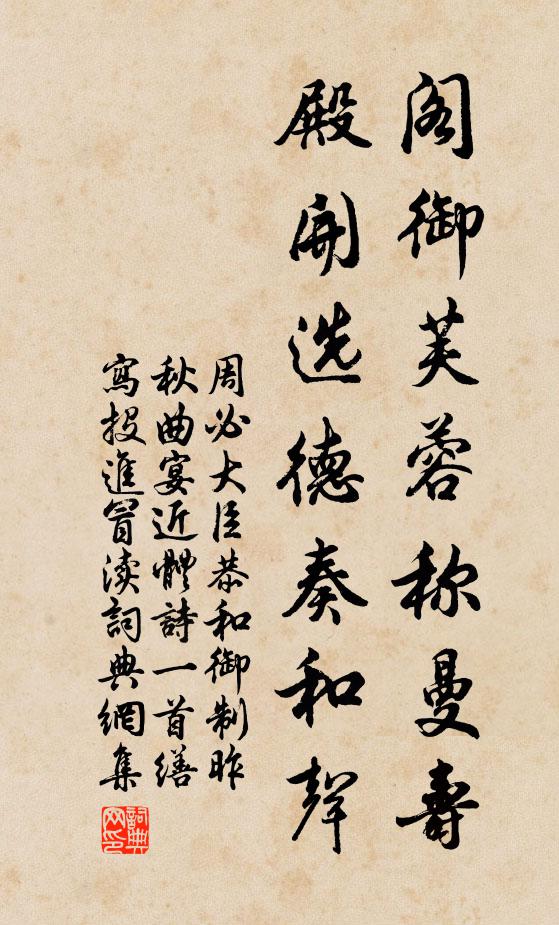 阁御芙蓉称曼壽
殿開选德奏和聲
周必大臣恭和御制昨
秋曲宴近體詩一首繕
寫投進冒渎詞典網集
詞典
网印